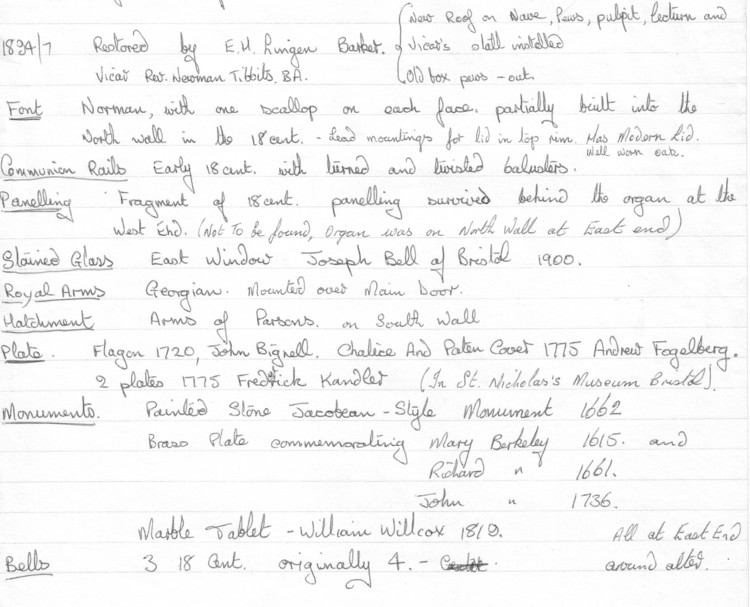 New Roof on Nave, Pews, pulpit, lecturn and
1894/7 Restored by E.H. Lingen Barker. Vicar's stall installed
Vicar Rev. Newman Tibbits, BA. Old box pews - out.
Font Norman, with one scallop on each face. partially built into the
North wall in the 18 cent. - Lead mountings for lid in top rim. Has Modern Lid.
Well worn oak.
Communion Rails Early 18 cent. with turned and twisted balusters.
Panelling Fragment of 18 cent. panelling survived behind the organ at the
West End. (Not To be found, Organ was on North Wall at East end)
Stained Glass East Window Joseph Bell of Bristol 1900.
Royal Arms Georgian. Mounted over Main Door.
Hatchment Arms of Parsons. on South Wall
Plate. Flagon 1720, John Bignell. Chalice And Paten Cover 1775 Andrew Fogelberg.
2 plates 1775 Fredrick Kandler (In St. Nicholas's Museum Bristol).
Monuments. Painted Stone Jacobean - Style Monument 1662
Brass Plate commemorating Mary Berkeley 1615. and
Richard " 1661.
John " 1736.
Marble Tablet - William Willcox 1819. All at East End
Bells 3 18 Cent. originally 4. - around alter.